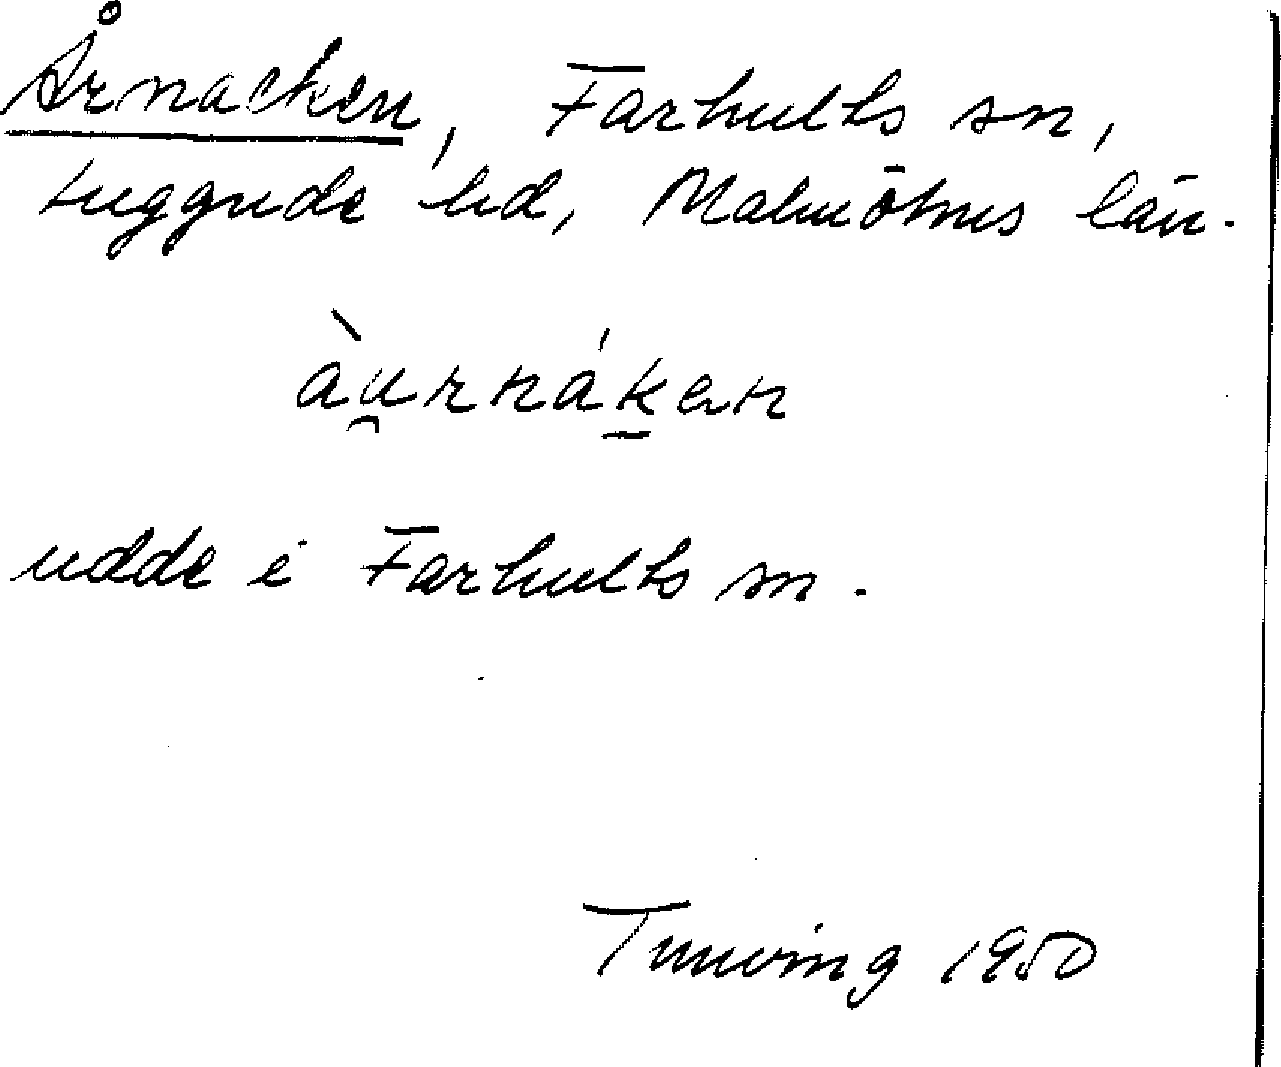 Årnacken, Farhults sn,
Luggude hd, Malmöhus län.
àu̯rnák̠en
udde i Farhults sn.
Tunving 1950